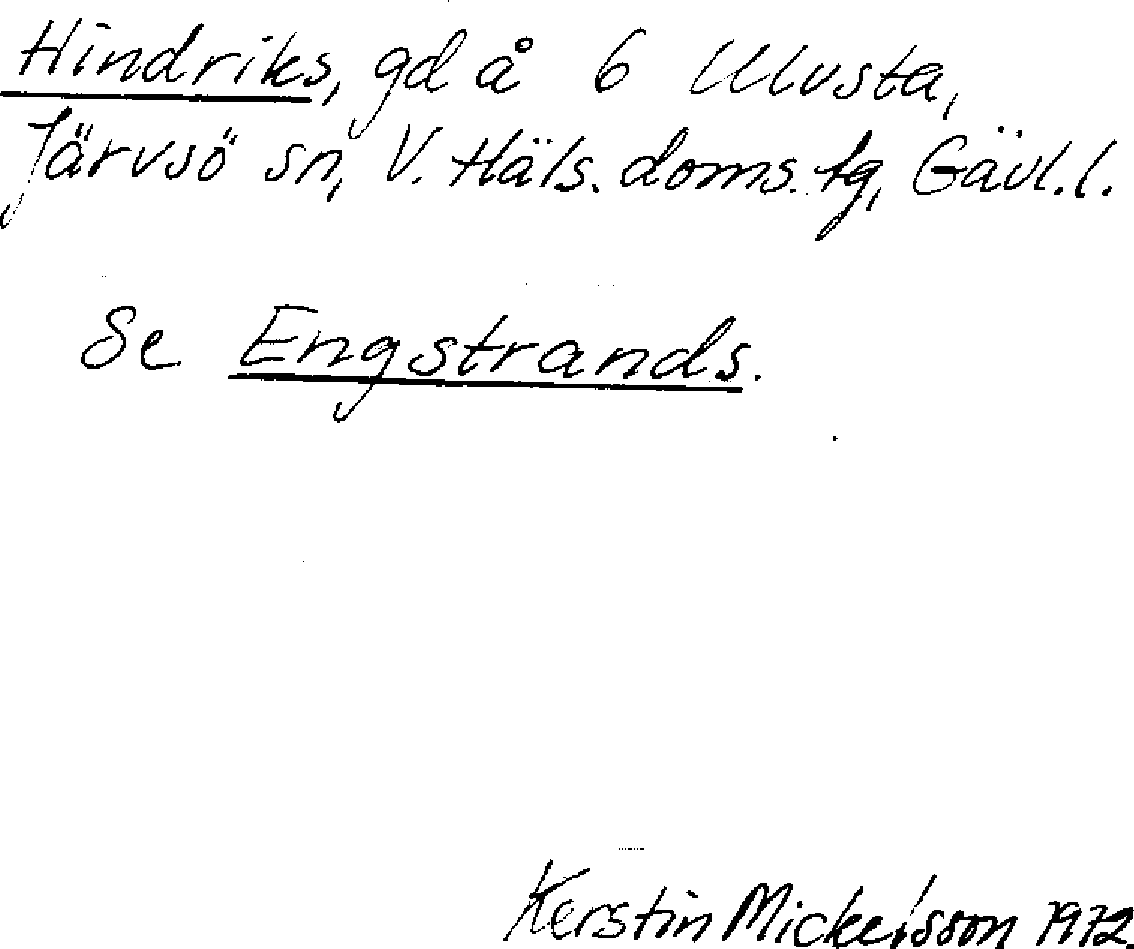 Hindriks, gd å 6 Ulvsta,
Järvsö sn, V. Häls. doms. tg, Gävl. l.
Se Engstrands.
Kerstin Mickelsson 1972